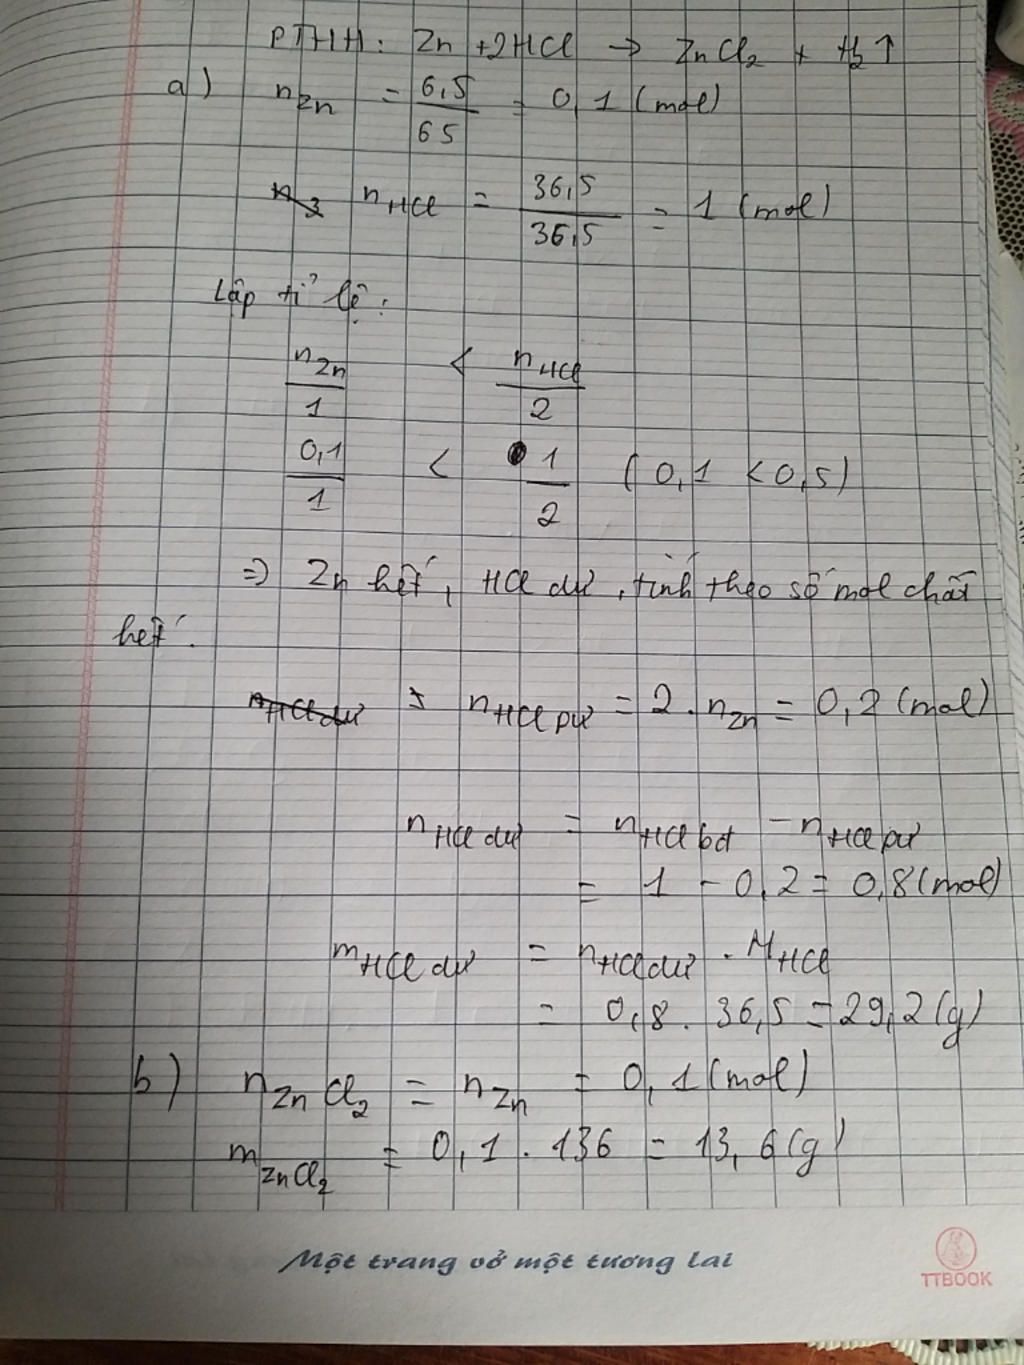 PTHH: Zn + 2HCl → ZnCl₂ + H₂↑
a) n_Zn = 6,5/65 = 0,1 (mol)
n_HCl = 36,5/36,5 = 1 (mol)
Lập tỉ lệ:
n_Zn/1 < n_HCl/2
0,1/1 < 1/2 (0,1 < 0,5)
=> Zn hết, HCl dư, tính theo số mol chất
hết.
n_HCl pư = 2 . n_Zn = 0,2 (mol)
n_HCl dư = n_HCl bđ - n_HCl pư
= 1 - 0,2 = 0,8 (mol)
m_HCl dư = n_HCl dư . M_HCl
= 0,8 . 36,5 = 29,2 (g)
b) n_ZnCl₂ = n_Zn = 0,1 (mol)
m_ZnCl₂ = 0,1 . 136 = 13,6 (g)
Một trang vở một tương lai
TTBOOK